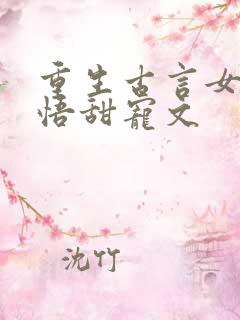 重生古言女
悟甜寵文
沈竹